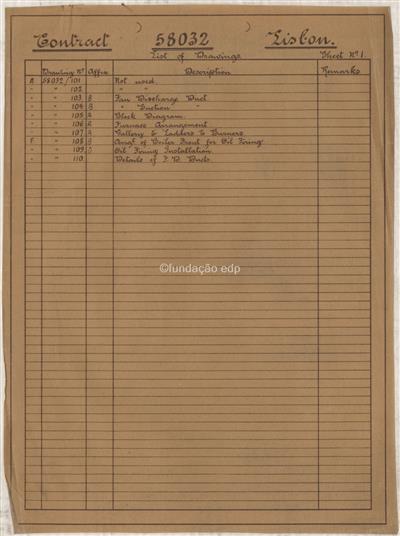 Contract 58032 Lisbon.
List of Drawings. Sheet Nº 1.
Drawing Nº Office Description Remarks
A 58032/101 Not used.
" " 102 " "
" " 103 B Fan Discharge Duct
" " 104 B " Suction "
" " 105 B Block Diagram.
" " 106 B Furnace Arrangement
" " 107 B Gallery & Ladders to Burners
F " 108 B Arrgt of Boiler Front for Oil Firing
" " 109 Oil Firing Installation.
" " 110. Details of F. D. Ducts.
©fundação edp